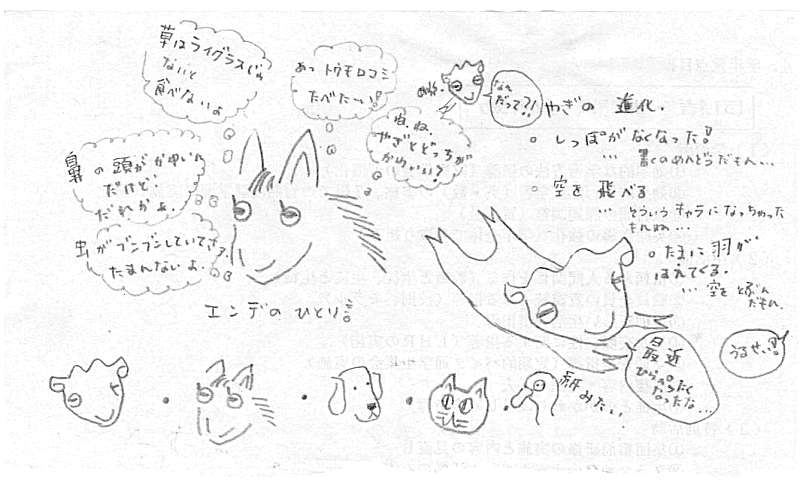 草はライグラスじゃ
ないと
食べないよ
あっ トウモロコシ
たべた〜い!
ね、ね、
やぎとどっちが
かわいい?
鼻の頭がかゆいん
だけど、
だれかよ.
虫がブンブンしていてさっ
たまんないよ.
エンデのひとり言
めぇ〜
なん
だって?!
やぎの 進化.
○ しっぽがなくなった!
… 書くのめんどうだもん…
○ 空を 飛べる
… そういうキャラになっちゃった
もんね…
○ たまに羽が、
はえてくる.
… 空をとぶんだもん.
最近
ひらべったく
なったな…
うるせぃ!!
紙みたい.